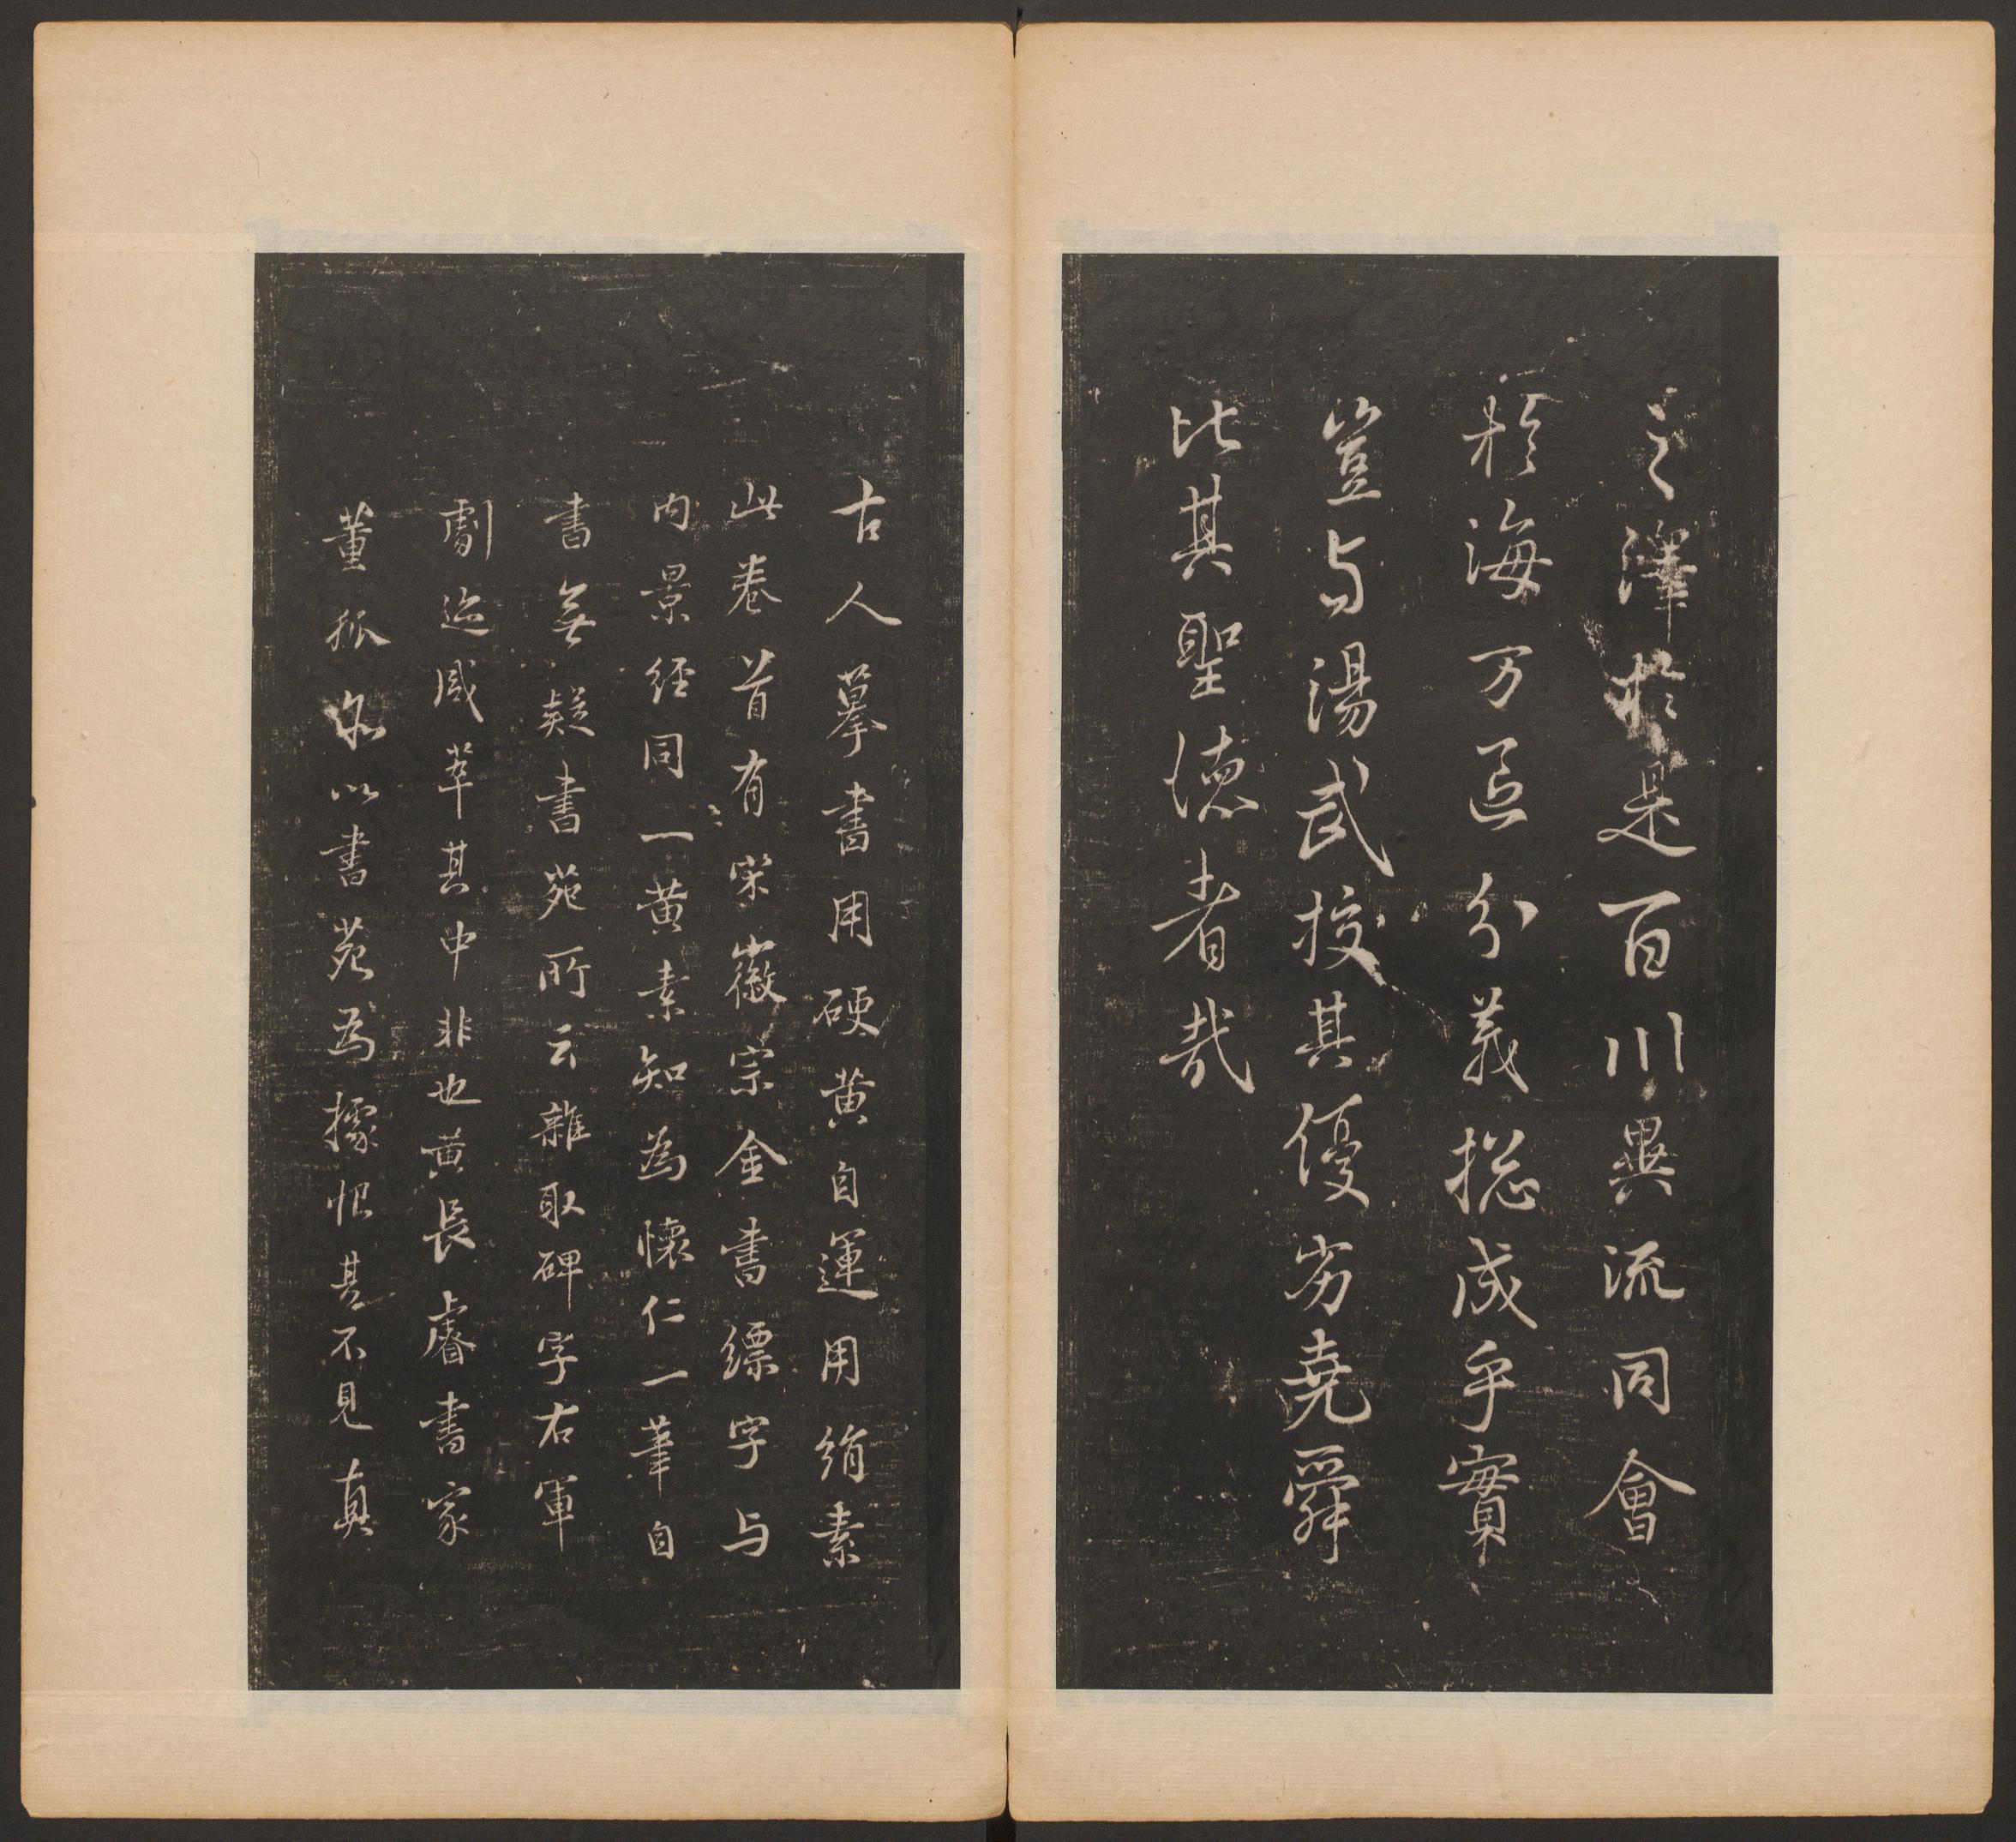 之澤於是百川異流同會
於海万區分義揔成乎實
豈与湯武挍其優劣堯舜
比其聖德者哉
古人摹書用硬黃自運用絹素
此卷首有宋徽宗金書縹字与
內景經同一黃素知為懷仁一筆自
書無疑書苑所云雜取碑字右軍
劇迹咸萃其中非也黃長睿書家
董狐亦以書苑為據恨其不見真